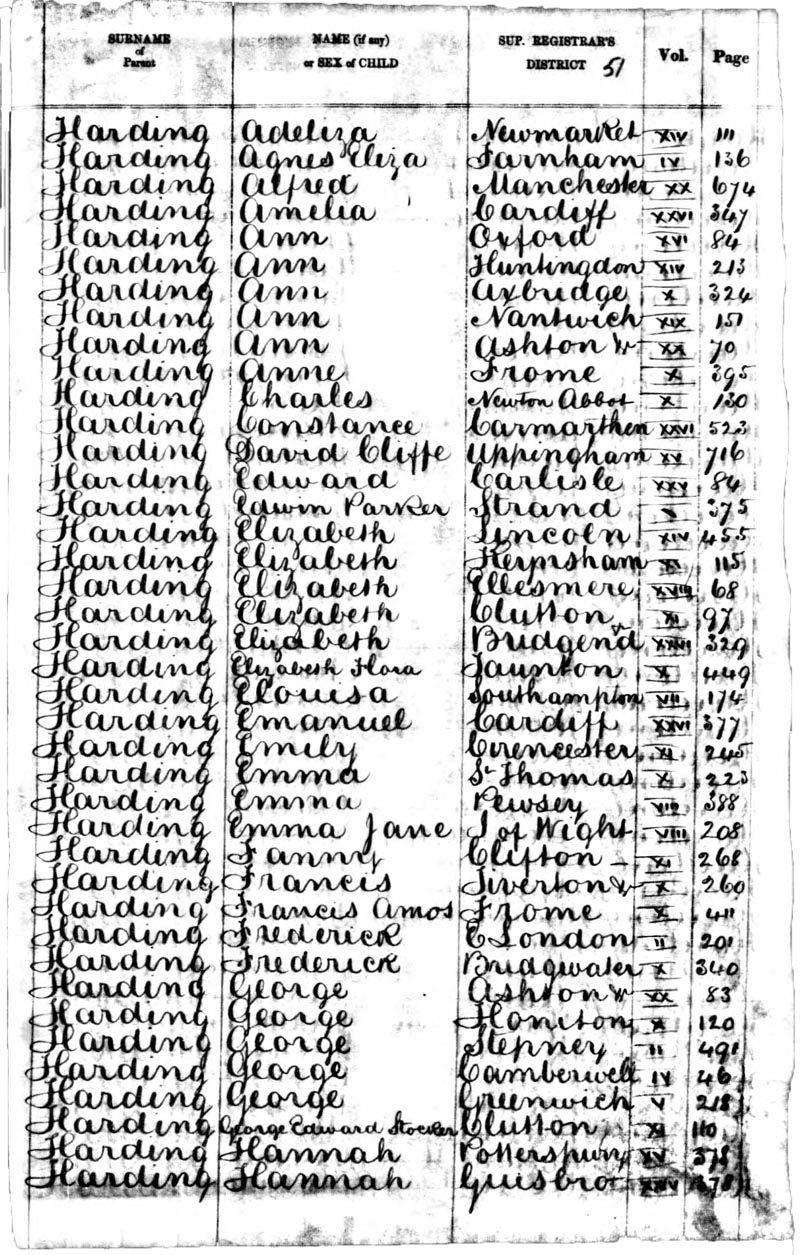 SURNAME of Parent NAME (if any) or SEX of CHILD SUP. REGISTRAR'S DISTRICT 51 Vol. Page
Harding Adeliza Newmarket XIV 111
Harding Agnes Eliza Farnham IV 136
Harding Alfred Manchester XX 674
Harding Amelia Cardiff XXVI 347
Harding Ann Oxford XVI 84
Harding Ann Huntingdon XIV 213
Harding Ann Axbridge X 324
Harding Ann Nantwich XIX 151
Harding Ann Ashton &c XX 70
Harding Anne Frome X 395
Harding Charles Newton Abbot X 130
Harding Constance Carmarthen XXVI 523
Harding David Cliffe Uppingham XV 716
Harding Edward Carlisle XXV 84
Harding Edwin Parker Strand 375
Harding Elizabeth Lincoln XIV 455
Harding Elizabeth Keynsham XI 115
Harding Elizabeth Ellesmere XVIII 68
Harding Elizabeth Clutton XI 97
Harding Elizabeth Bridgend XXVI 329
Harding Elizabeth Flora Taunton X 449
Harding Elouisa Southampton VII 174
Harding Emanuel Cardiff XXVI 377
Harding Emily Cirencester XI 245
Harding Emma St Thomas X 223
Harding Emma Pewsey VIII 388
Harding Emma Jane I of Wight VIII 208
Harding Fanny Clifton XI 268
Harding Francis Tiverton &c X 260
Harding Francis Amos Frome X 411
Harding Frederick E London II 201
Harding Frederick Bridgwater X 340
Harding George Ashton &c XX 83
Harding George Honiton X 120
Harding George Stepney II 491
Harding George Camberwell IV 46
Harding George Greenwich V 218
Harding George Edward Stocker Clutton XI 110
Harding Hannah Potterspury XV 378
Harding Hannah Guisbro XXIV 378